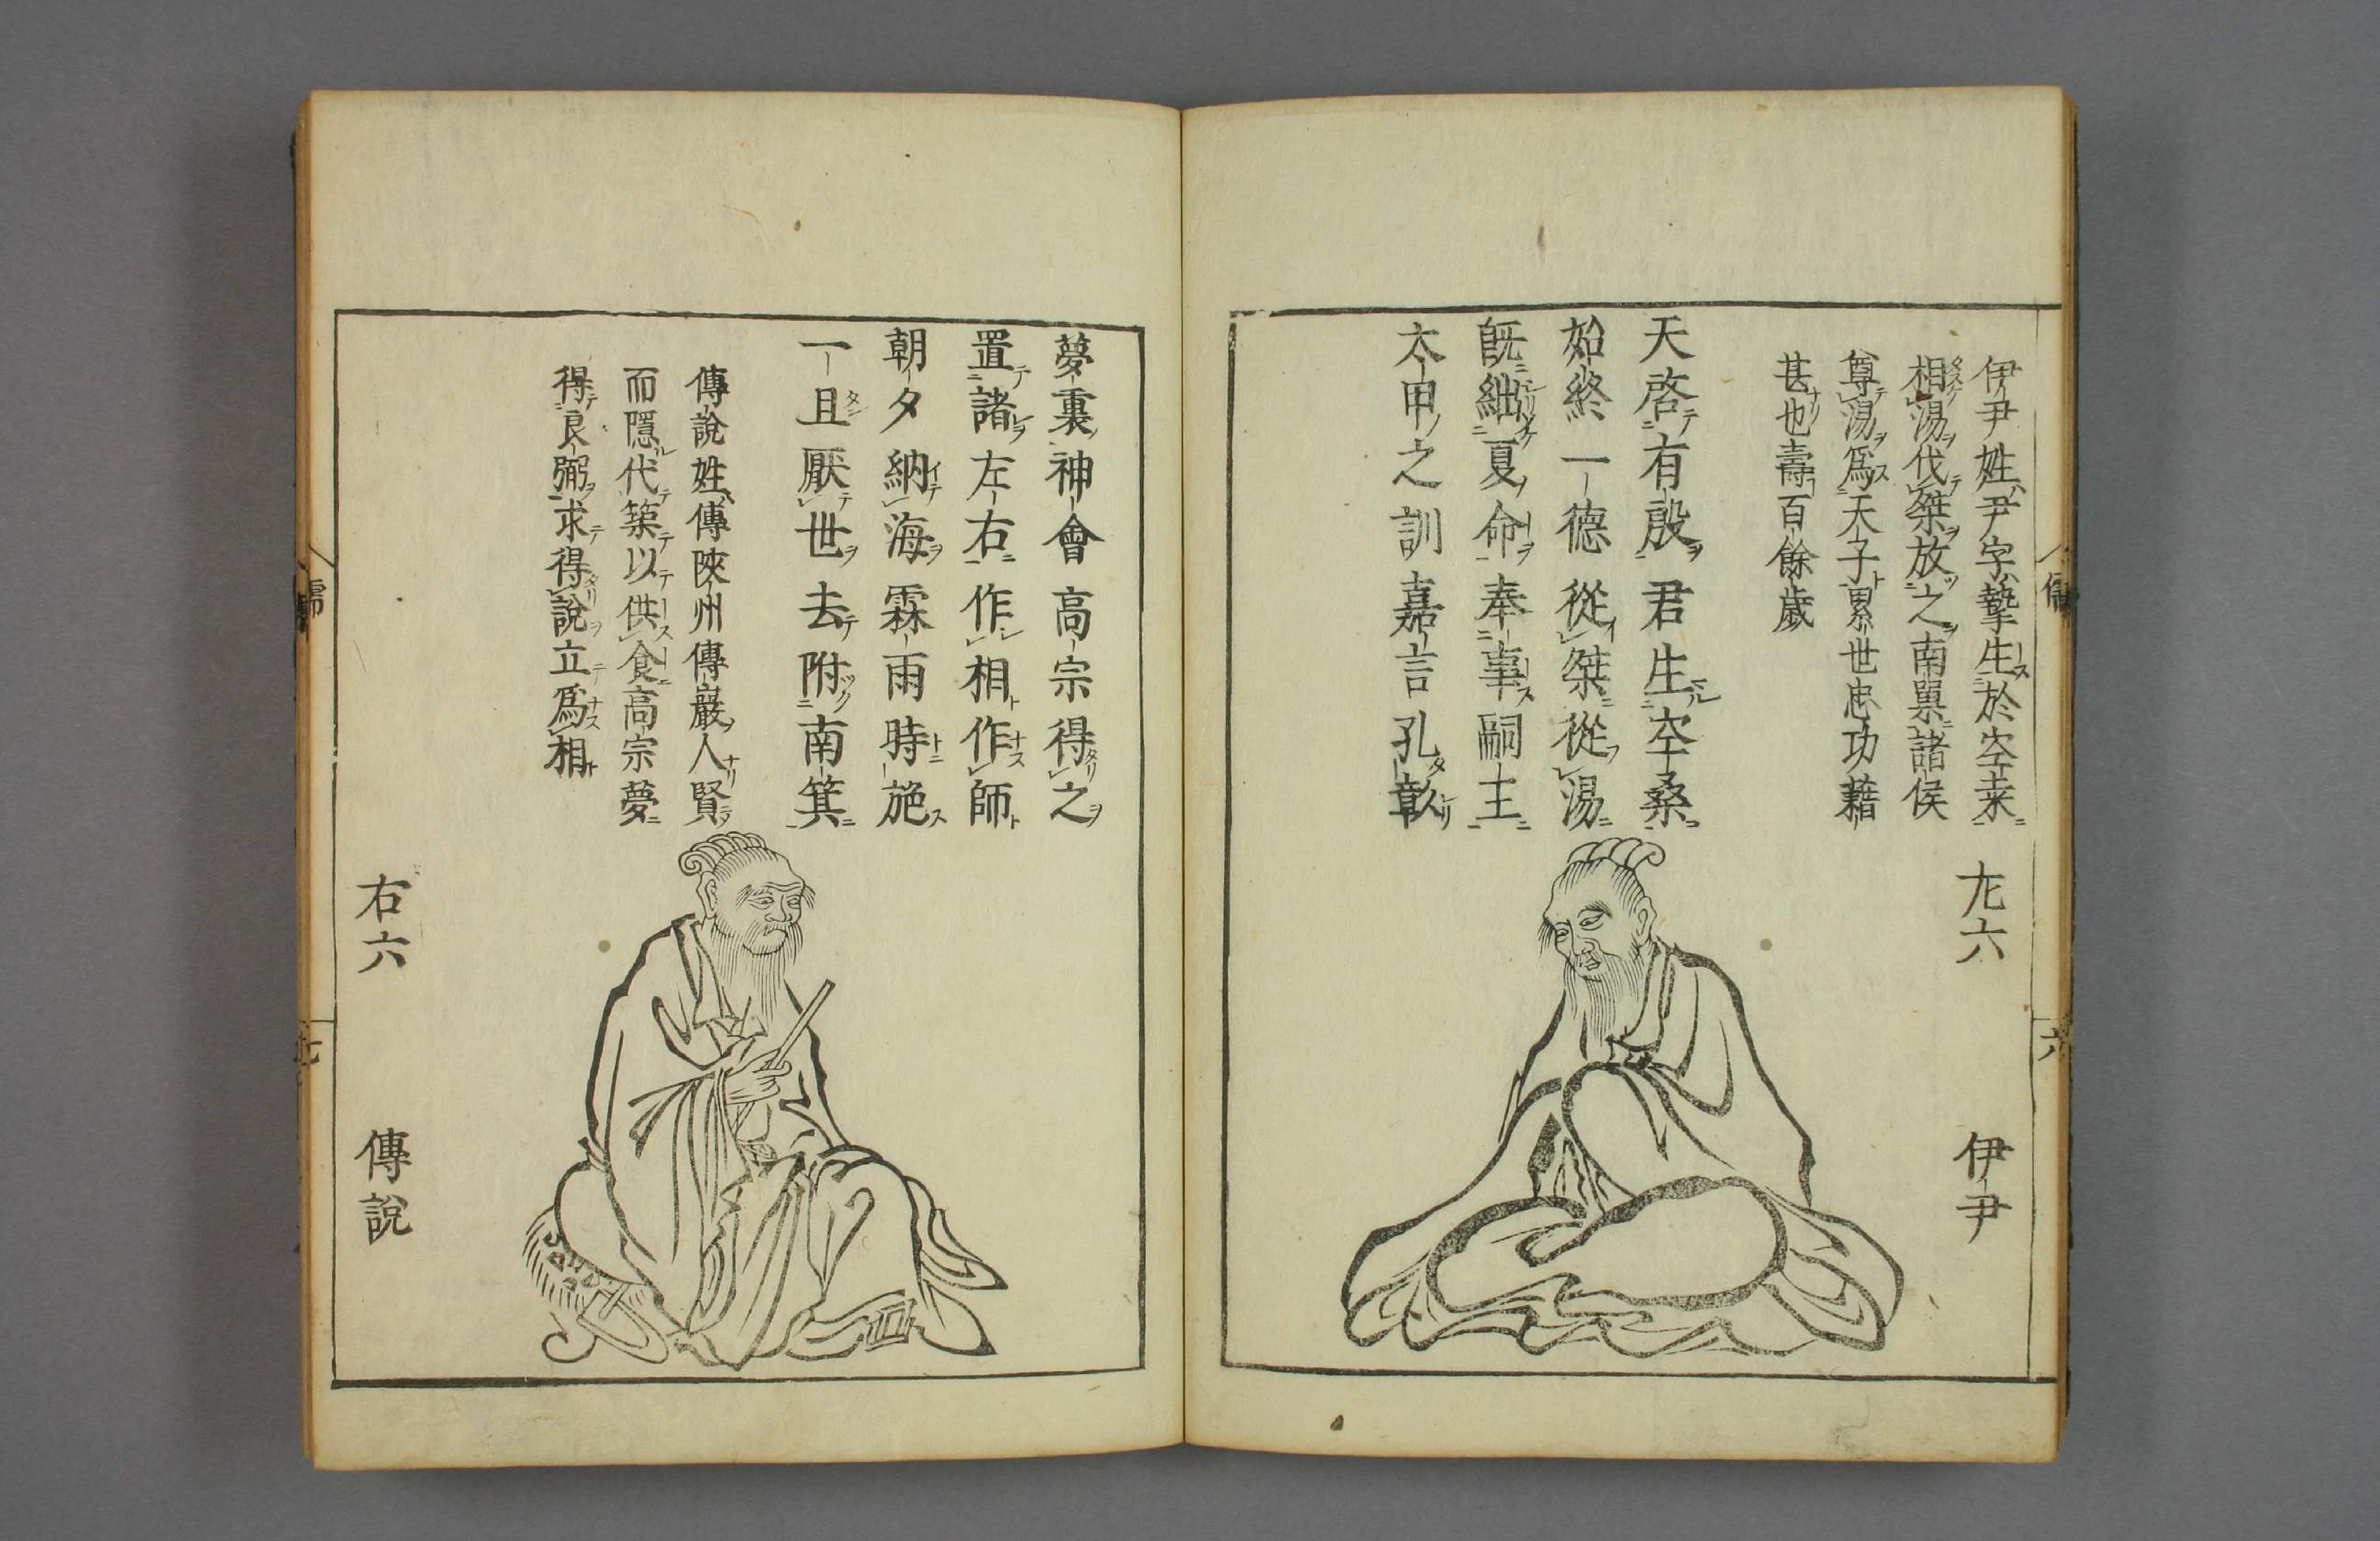 儒
六
伊尹姓尹字摯生於空桒
相湯伐桀放之南巢諸侯
尊湯爲天子累世忠功藉
甚也壽百餘歲
左六　伊尹
天啓有殷君生空桑
始終一德從桀從湯
既絀夏命奉事嗣王
太甲之訓嘉言孔彰
夢裏神會高宗得之
置諸左右作相作師
朝夕納海霖雨時施
一且厭世去附南箕
傳說姓傳陜州傳巖人賢
而隱代築以供食高宗夢
得良弼求得說立爲相
右六　傳說
儒
七